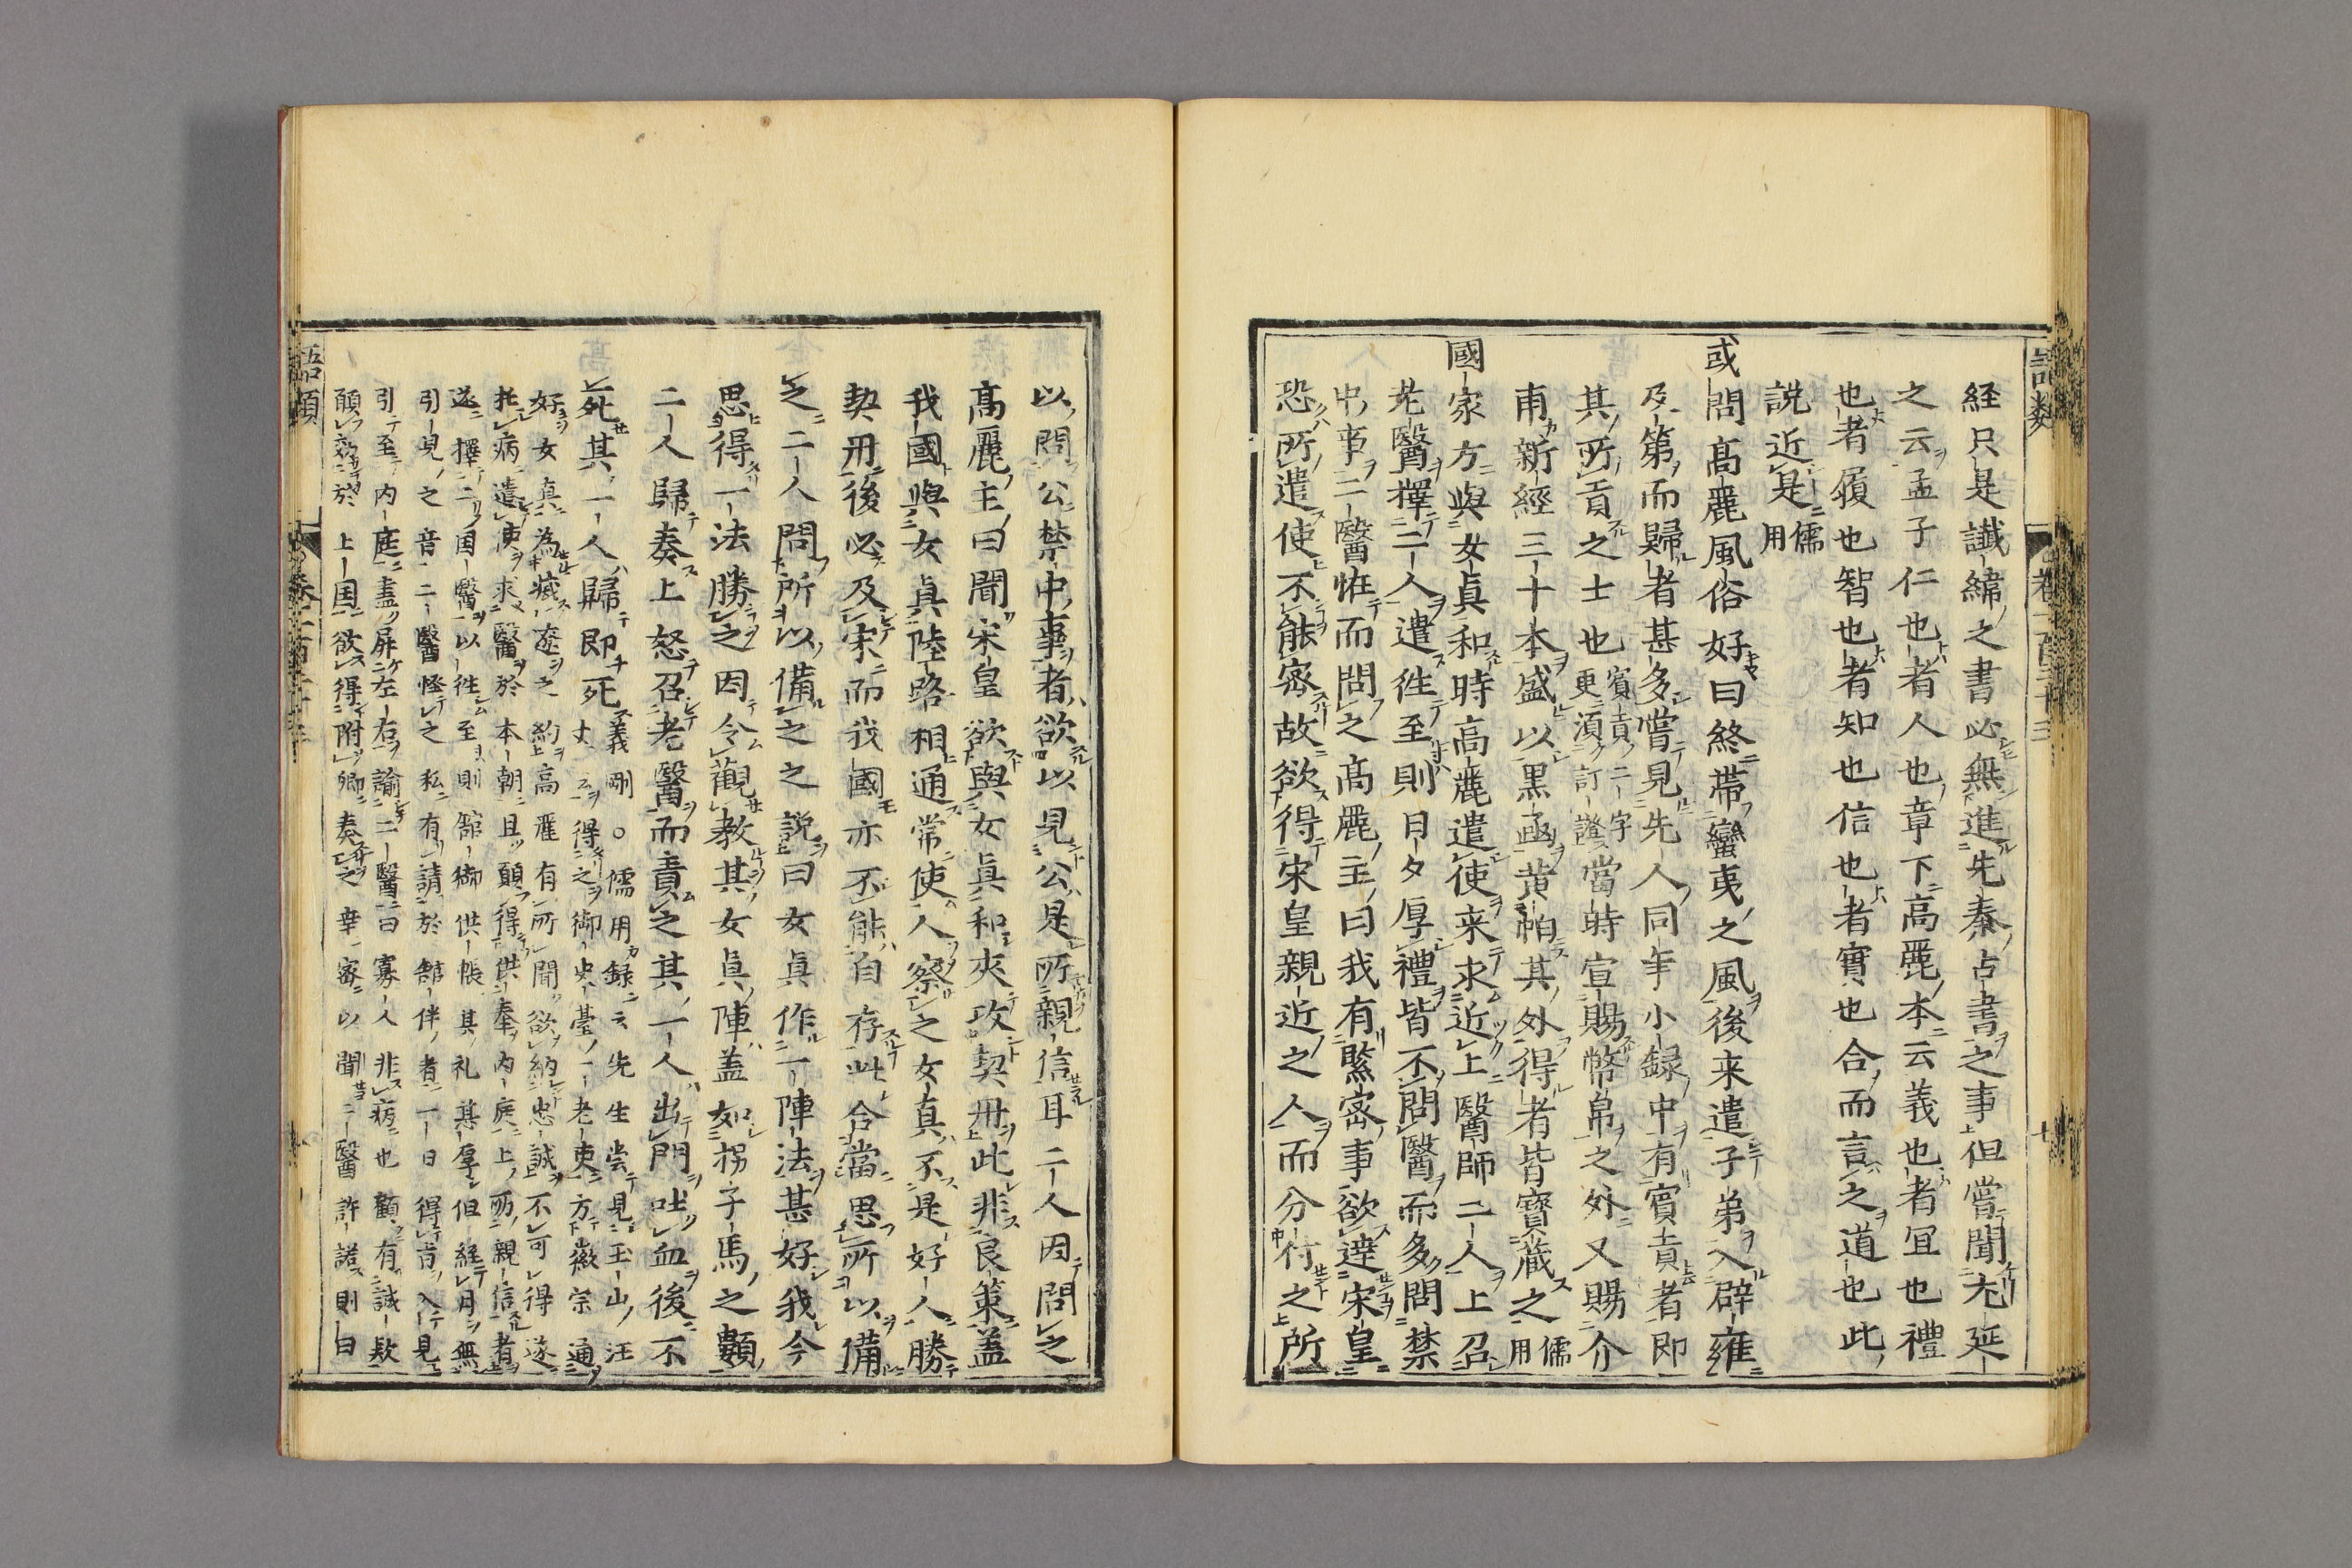 語類
卷一百三十三
十
経只是讖緯之書必無進先秦占書之事但嘗聞尤延
之云孟子仁也者人也章下高麗本云義也者宜也禮
也者履也智也者知也信也者實也合而言之道也此
説近是儒用
或問高麗風俗好曰終帶蠻夷之風後来遣子弟入辟雍
及第而歸者甚多嘗見先人同年小録中有賓貢者即
其所貢之士也賓貢二字更須訂證當時宣賜幣帛之外又賜介
甫新經三十本盛以黒函黄帕其外得者皆寶藏之儒用
國家方與女真和時高麗遣使来求近上醫師二人上召
老醫擇二人遣徃至則日夕厚禮皆不問醫而多問禁
中事二醫恠而問之高麗主曰我有緊宻事欲達宋皇
恐所遣使不能宻故欲得宋皇親近之人而分付之所
以問公禁中事者欲以見公是所親信耳二人因問之
高麗主曰聞宋皇欲與女真和夾攻契丹此非良策盖
我國與女真陸路相通常使人察之女真不是好人勝
契丹後必及宋而我國亦不能自存此合當思所以備
之二人問所以備之之説曰女真作一陣法甚好我今
思得一法勝之因令觀教其女真陣盖如拐子馬之類
二人歸奏上怒召老醫而責之其一人出門吐血後不
死其一人歸即死義剛○儒用録云先生嘗見玉山汪
丈云得之御史臺一老吏方徽宗通
好女真為滅遼之約高麗有所聞欲納忠誠不可得遂
托病遣使求醫於本朝且願得供奉内庭上所親信者
遂擇二国醫以徃至則舘御供帳其礼甚厚但経月無
引見之音二醫怪之私有請於舘伴者一日得旨入見
引至内庭盡屏左右諭二醫曰寡人非病也顧有誠欵
願效於上国欲得附卿奏之幸宻以聞二醫許諾則曰
語類
卷一百三十三